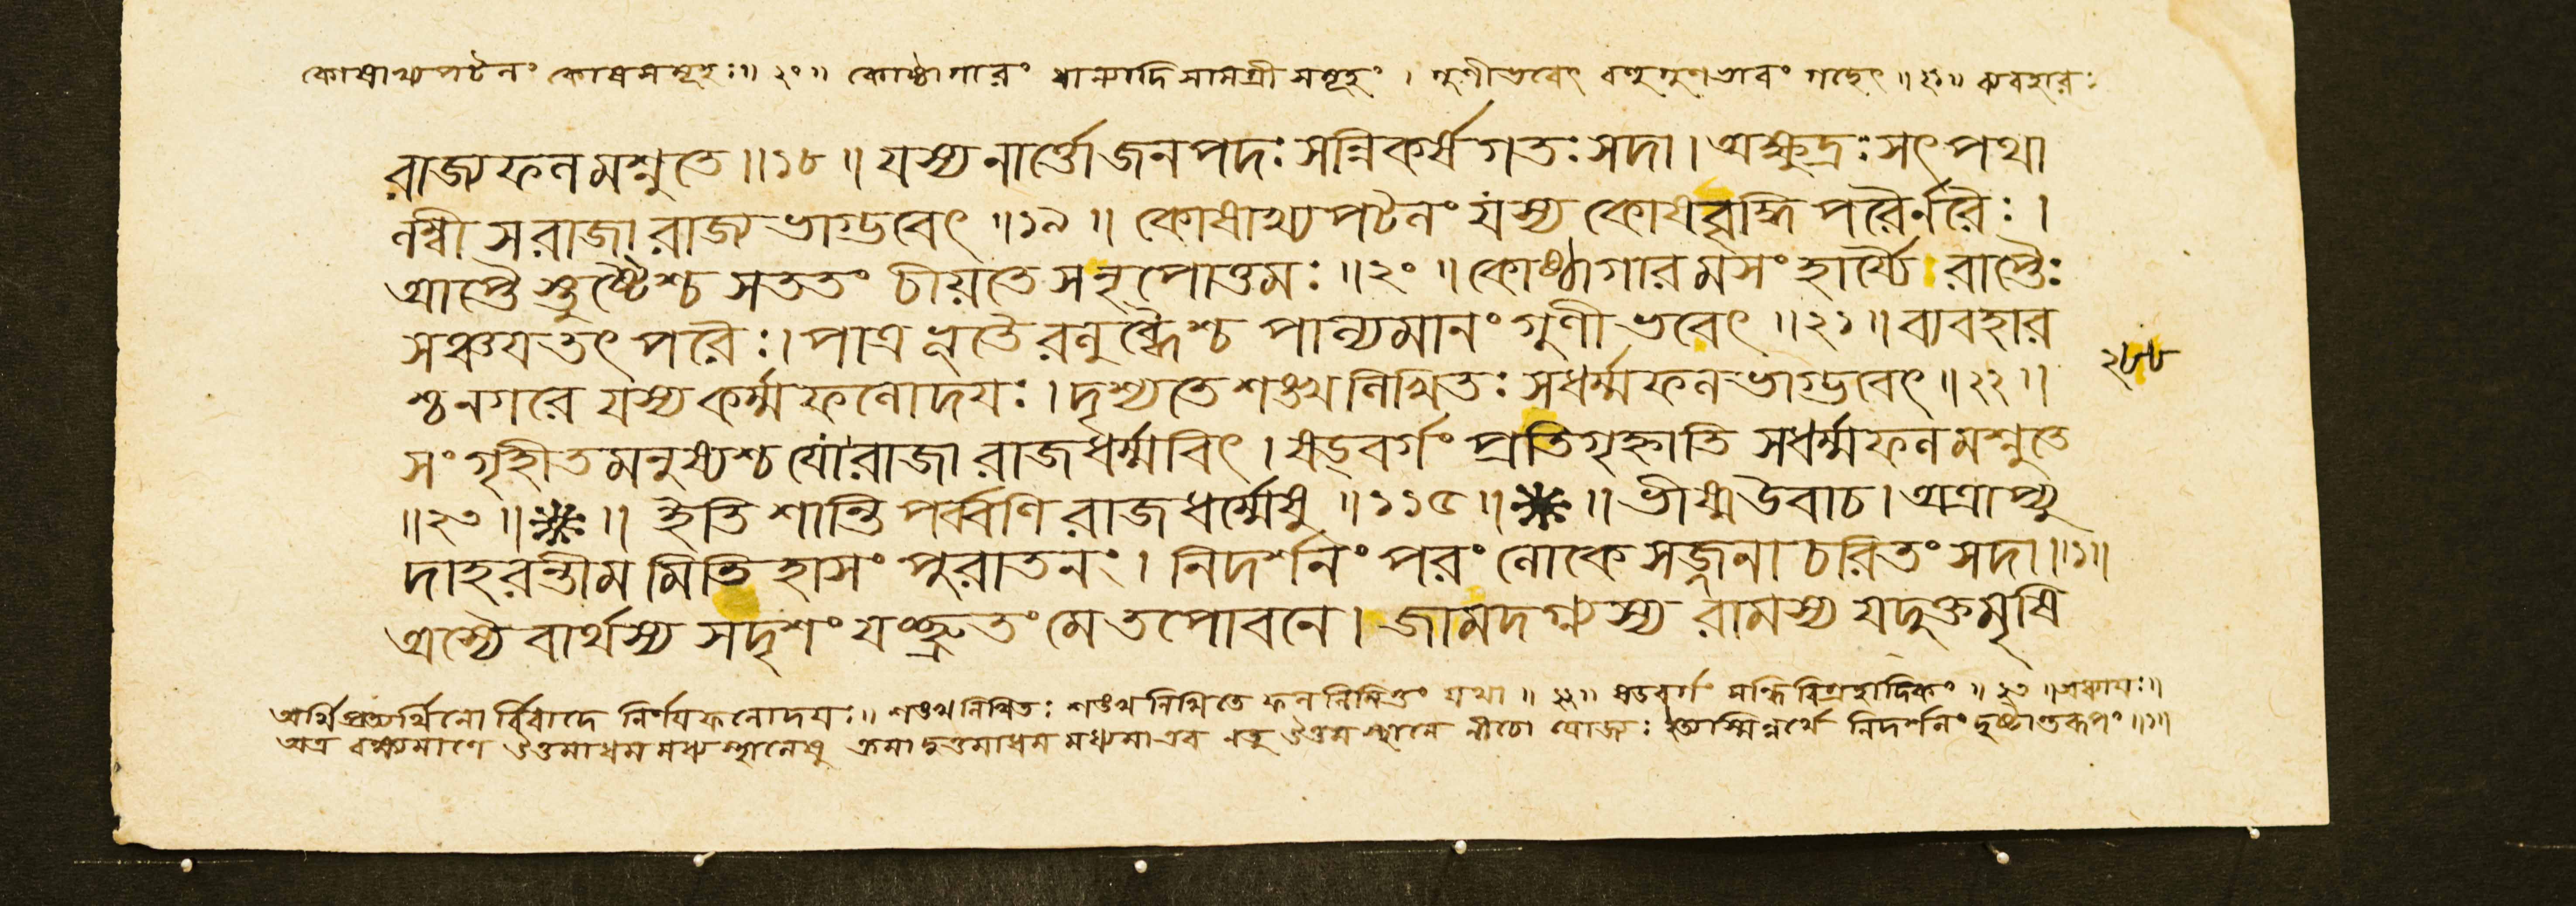 কোষাখ্যপটলং কোষসমূহঃ॥২০॥ কোষ্ঠাগারং ধান্যাদিসামগ্রীসমূহং। গুণীভবেৎ বহুগুণভাবং গচ্ছেৎ॥২১॥ ব্যবহারঃ
রাজ্যফলমশ্নুতে॥১৮॥যস্য নার্ত্তো জনপদঃ সন্নিকর্ষগতঃ সদা। অক্ষুদ্রঃ সৎপথা
লম্বী স রাজা রাজ্যভাগ্ভবেৎ॥১৯॥ কোষাখ্যপটলং যস্য কোষবৃদ্ধিপরৈর্নরৈঃ।
আপ্তৈস্তুষ্টৈশ্চ সততং চীয়তে স নৃপোত্তমঃ॥২০॥কোষ্ঠাগারমসংহার্য্যৈরাপ্তৈঃ
সঞ্চয়তৎপরৈঃ।পাত্রভূতৈরলুব্ধৈশ্চ পাল্যমানং গুণীভবেৎ॥২১॥ব্যবহার
শ্চ নগরে যস্য কর্ম্মফলোদয়ঃ।দৃশ্যতে শঙ্খলিখিতঃ স ধর্ম্মফলভাগ্ভবেৎ॥২২॥
সংগৃহীতমনুষ্যশ্চ যো রাজা রাজধর্ম্মবিৎ।ষড়্বর্গং প্রতিগৃহ্ণাতি স ধর্ম্মফলমশ্নুতে
॥২৩॥※॥ ইতি শান্তিপর্ব্বণি রাজধর্ম্মেষু॥১১৫॥※॥ভীষ্ম উবাচ।অত্রাপ্যু
দাহরন্তীমমিতিহাসং পুরাতনং। নিদর্শনং পরং লোকে সজ্জনাচরিতং সদা॥১॥
অস্যৈবার্থস্য সদৃশং যচ্ছ্রুতং মে তপোবনে। জামদগ্ন্যস্য রামস্য যদুক্তমৃষি
২৮৮
অর্থিপ্রত্যর্থিনোর্ব্বিবাদে নির্ণয়ফলোদয়ঃ॥ শঙ্খলিখিতঃ শঙ্খলিখিতে ফলনিমিত্তং যথা॥২২॥ ষড়বর্গং সন্ধিবিগ্রহাদিকং॥২৩॥অধ্যায়ঃ॥
অত্র বক্ষ্যমাণে উত্তমাধমমধ্যস্থানেষু ক্রমাদুত্তমাধমমধ্যমা এব নতু উত্তমস্থানে নীচো যোজ্যঃ অস্মিন্নর্থে নিদর্শনং দৃষ্টান্তরূপং॥১॥